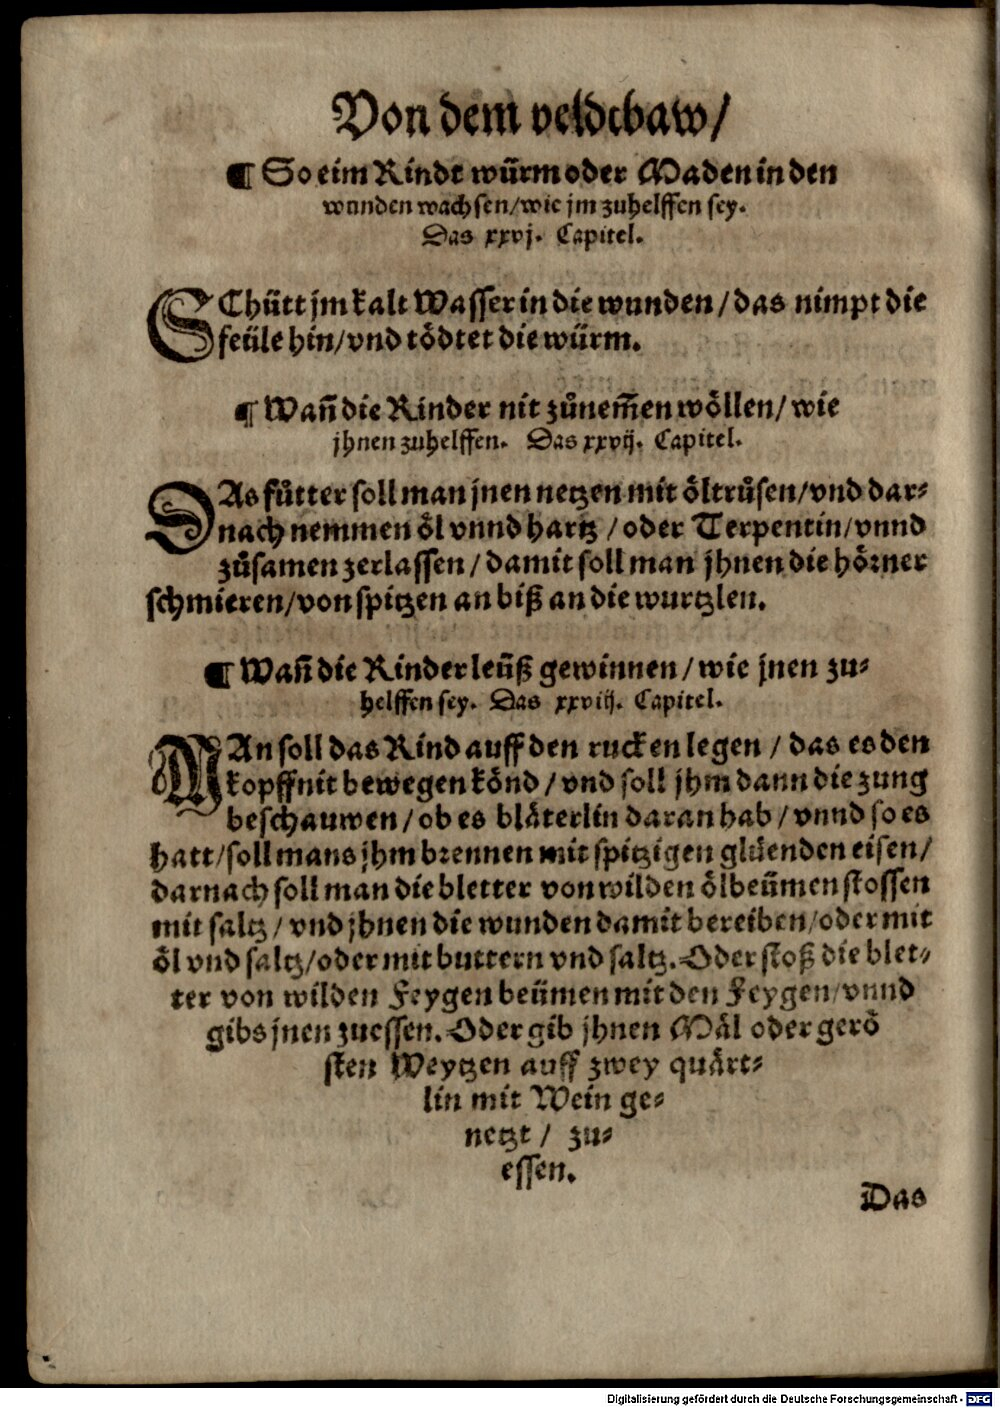 Von dem veldtbaw/
¶ So eim Rindt würm oder Maden in den
wunden wachsen/wie jm zuhelffen sey.
Das xxvj. Capitel.
SChütt jm kalt Wasser in die wunden/das nimpt die
feüle hin/vnd tödtet die würm.
¶ Wañ die Rinder nit zůnem̃en wöllen/wie
jhnen zuhelffen. Das xxvij. Capitel.
DAs fůtter soll man jnen netzen mit öltrůsen/vnd dar⸗
nach nemmen öl vnnd hartz/oder Terpentin/vnnd
zůsamen zerlassen/damit soll man jhnen die hörner
schmieren/von spitzen an biß an die wurtzlen.
¶ Wañ die Rinder leüß gewinnen/wie jnen zu⸗
helffen sey. Das xxviij. Capitel.
MAn soll das Rind auff den rucken legen/das es den
kopff nit bewegen könd/vnd soll jhm dann die zung
beschauwen/ob es bläterlin daran hab/vnnd so es
hatt/soll mans jhm brennen mit spitzigen glüenden eisen/
darnach soll man die bletter von wilden ölbeümen stossen
mit saltz/vnd jhnen die wunden damit bereiben/oder mit
öl vnd saltz/oder mit buttern vnd saltz. Oder stoß die blet⸗
ter von wilden Feygenbeümen mit den Feygen/vnnd
gibs jnen zuessen. Oder gib jhnen Mäl oder gerö
sten Weytzen auff zwey quärt⸗
lin mit Wein ge⸗
netzt/ zu⸗
essen.
Das
Digitalisierung gefördert durch die Deutsche Forschungsgemeinschaft - DFG